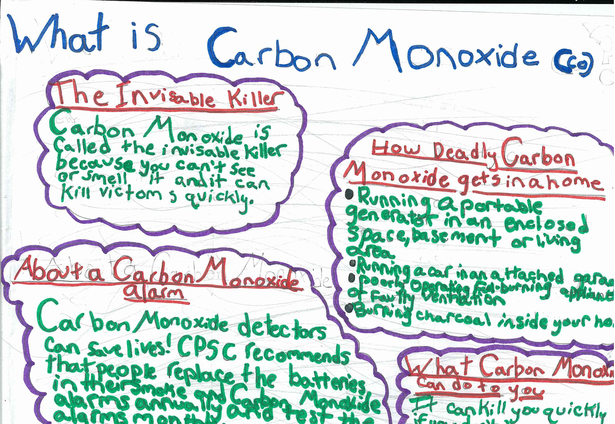 What is Carbon Monoxide (CO)
The Invisable Killer
Carbon Monoxide is
called the invisable killer
because you can't see
or smell it and it can
kill victoms quickly.
How Deadly Carbon
Monoxide gets in a home
• Running a portable
generater in an enclosed
space, basement or living
area.
• Running a car in an attached garag
• poorly operating fuel-burning applian
or faulty ventilation
• Burning charcoal inside your ho
About a Carbon Monoxide
alarm
Carbon Monoxide detectors
can save lives! CPSC recommends
that people replace the batteries
in their smoke and Carbon Monoxide
alarms annually and test the
alarms monthly.
What Carbon Monox
can do to you
It can kill you quickly